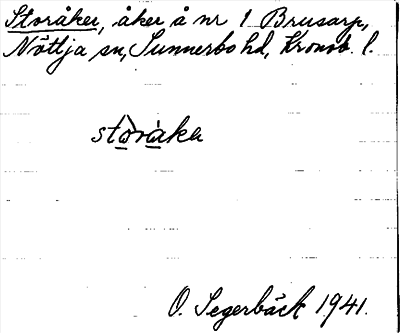 Storåker, åker å nr 1 Brusarp,
Nöttja sn, Sunnerbo hd, Kronob. l.
stòråka
O. Segerbäck 1941.